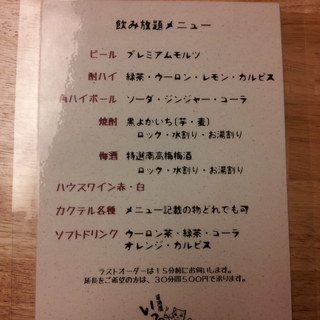 飲み放題メニュー
ビール プレミアムモルツ
酎ハイ 緑茶・ウーロン・レモン・カルピス
角ハイボール ソーダ・ジンジャー・コーラ
焼酎 黒よかいち(芋・麦)
ロック・水割り・お湯割り
梅酒 特選南高梅梅酒
ロック・水割り・お湯割り
ハウスワイン赤・白
カクテル各種 メニュー記載の物どれでも可
ソフトドリンク ウーロン茶・緑茶・コーラ
オレンジ・カルピス
ラストオーダーは15分前にお伺いします。
延長をご希望の方は、30分間500円で承ります。
居酒屋